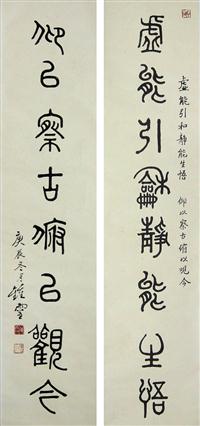 虛能引龢靜能生悟
虛能引和靜能生悟 仰以察古俯以观今
仰㠯察古俯㠯觀今
庚辰冬